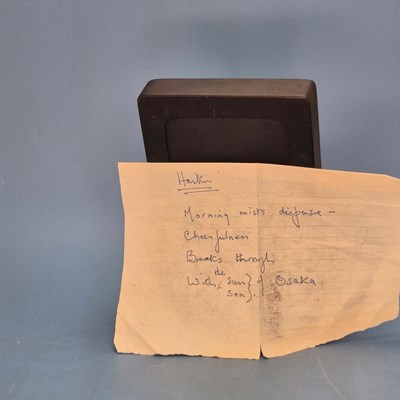 Haiku
Morning mists disperse –
Cheerfulness
Breaks through
With the Sun} of Osaka.
Son}